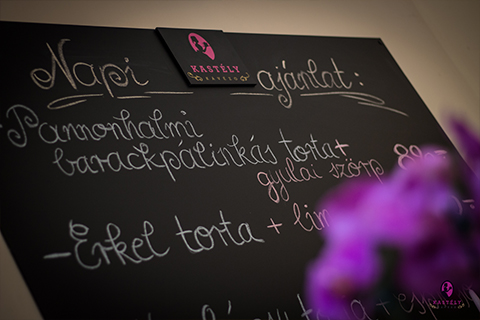 KASTÉLY
KÁVÉZÓ
Napi ajánlat:
-Pannonhalmi
barackpálinkás torta+
gyulai szörp
-Erkel torta +
torta +
KASTÉLY